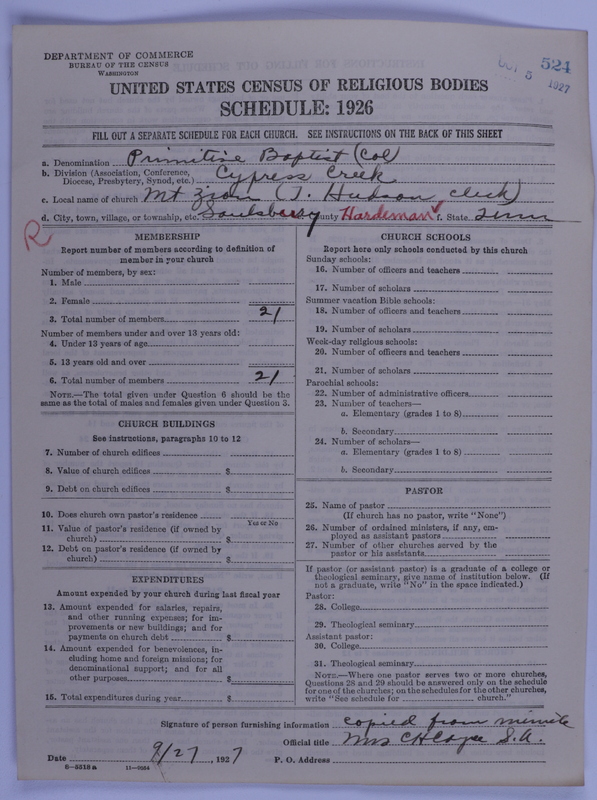 DEPARTMENT OF COMMERCE
BUREAU OF THE CENSUS
WASHINGTON
OCT 5 1927
524
UNITED STATES CENSUS OF RELIGIOUS BODIES
SCHEDULE: 1926
FILL OUT A SEPARATE SCHEDULE FOR EACH CHURCH. SEE INSTRUCTIONS ON THE BACK OF THIS SHEET
a. Denomination Primitive Baptist (Col)
b. Division (Association, Conference, Diocese, Presbytery, Synod, etc.) Cypress Creek
c. Local name of church Mt Zion (T. Hudson, clerk)
d. City, town, village, or township, etc. Saulsberry County Hardeman f. State Tenn
R
MEMBERSHIP
Report number of members according to definition of
member in your church
Number of members, by sex:
1. Male
2. Female
3. Total number of members 21
Number of members under and over 13 years old:
4. Under 13 years of age
5. 13 years old and over
6. Total number of members 21
NOTE.—The total given under Question 6 should be the
same as the total of males and females given under Question 3.
CHURCH BUILDINGS
See instructions, paragraphs 10 to 12
7. Number of church edifices
8. Value of church edifices $
9. Debt on church edifices $
10. Does church own pastor's residence
Yes or No
11. Value of pastor's residence (if owned by
church) $
12. Debt on pastor's residence (if owned by
church) $
EXPENDITURES
Amount expended by your church during last fiscal year
13. Amount expended for salaries, repairs,
and other running expenses; for im-
provements or new buildings; and for
payments on church debt $
14. Amount expended for benevolences, in-
cluding home and foreign missions; for
denominational support; and for all
other purposes $
15. Total expenditures during year $
CHURCH SCHOOLS
Report here only schools conducted by this church
Sunday schools:
16. Number of officers and teachers
17. Number of scholars
Summer vacation Bible schools:
18. Number of officers and teachers
19. Number of scholars
Week-day religious schools:
20. Number of officers and teachers
21. Number of scholars
Parochial schools:
22. Number of administrative officers
23. Number of teachers—
a. Elementary (grades 1 to 8)
b. Secondary
24. Number of scholars—
a. Elementary (grades 1 to 8)
b. Secondary
PASTOR
25. Name of pastor
(If church has no pastor, write "None")
26. Number of ordained ministers, if any, em-
ployed as assistant pastors
27. Number of other churches served by the
pastor or his assistants
If pastor (or assistant pastor) is a graduate of a college or
theological seminary, give name of institution below. (If
not a graduate, write "No" in the space indicated.)
Pastor:
28. College
29. Theological seminary
Assistant pastor:
30. College
31. Theological seminary
NOTE.—Where one pastor serves two or more churches,
Questions 28 and 29 should be answered only on the schedule
for one of the churches; on the schedules for the other churches,
write "See schedule for church."
Signature of person furnishing information copied from minute
Official title Mrs C H Cayce S.A.
Date 9/27, 1927 P. O. Address
8-5518 a 11-9054